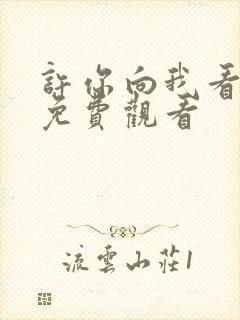 許你向我看
免費觀看
流雲山莊1